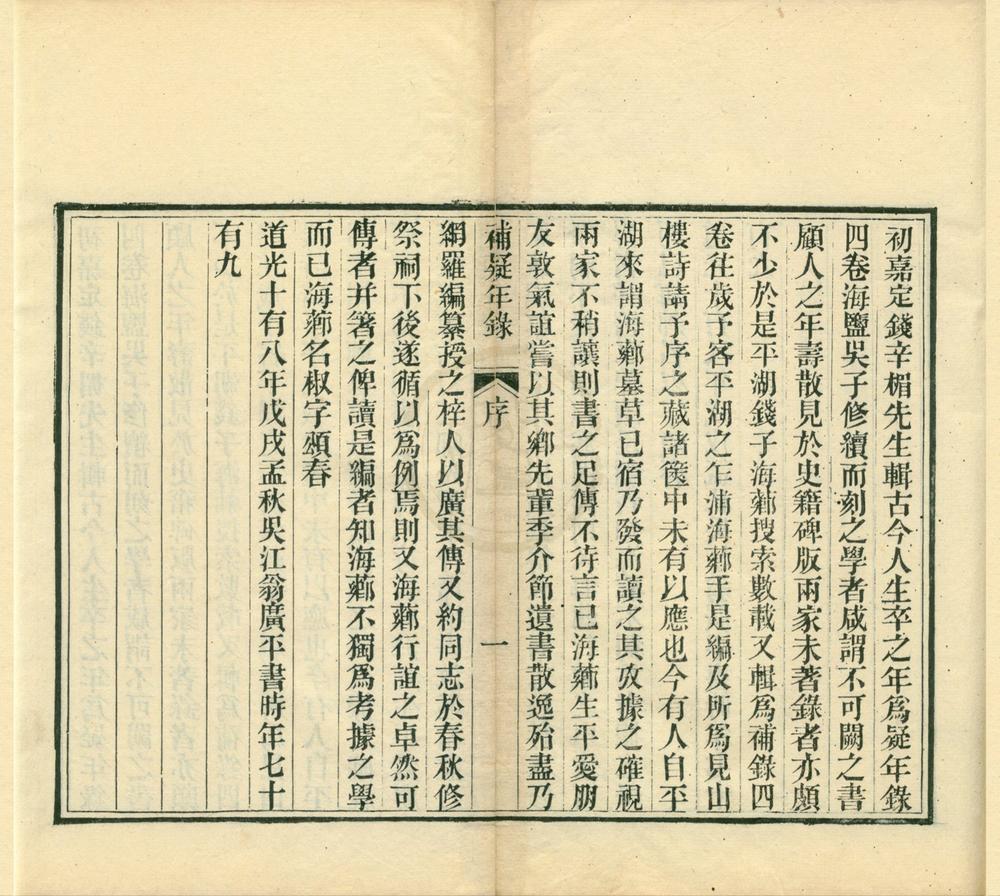 初嘉定錢辛楣先生輯古今人生卒之年爲疑年錄
四卷海鹽吳子修續而刻之學者咸謂不可闕之書
顧人之年壽散見於史籍碑版兩家未著錄者亦頗
不少於是平湖錢子海薌搜索數載又輯爲補錄四
卷往歲予客平湖之乍浦海薌手是編及所爲見山
樓詩請予序之藏諸篋中未有以應也今有人自平
湖來謂海薌墓草已宿乃發而讀之其攷據之確視
兩家不稍讓則書之足傳不待言已海薌生平愛朋
友敦氣誼嘗以其鄉先輩季介節遺書散逸殆盡乃
補疑年錄 序 一
網羅編纂授之梓人以廣其傳又約同志於春秋修
祭祠下後遂循以爲例焉則又海薌行誼之卓然可
傳者并箸之俾讀是編者知海薌不獨爲考據之學
而已海薌名椒字頖春
道光十有八年戊戌孟秋吳江翁廣平書時年七十
有九